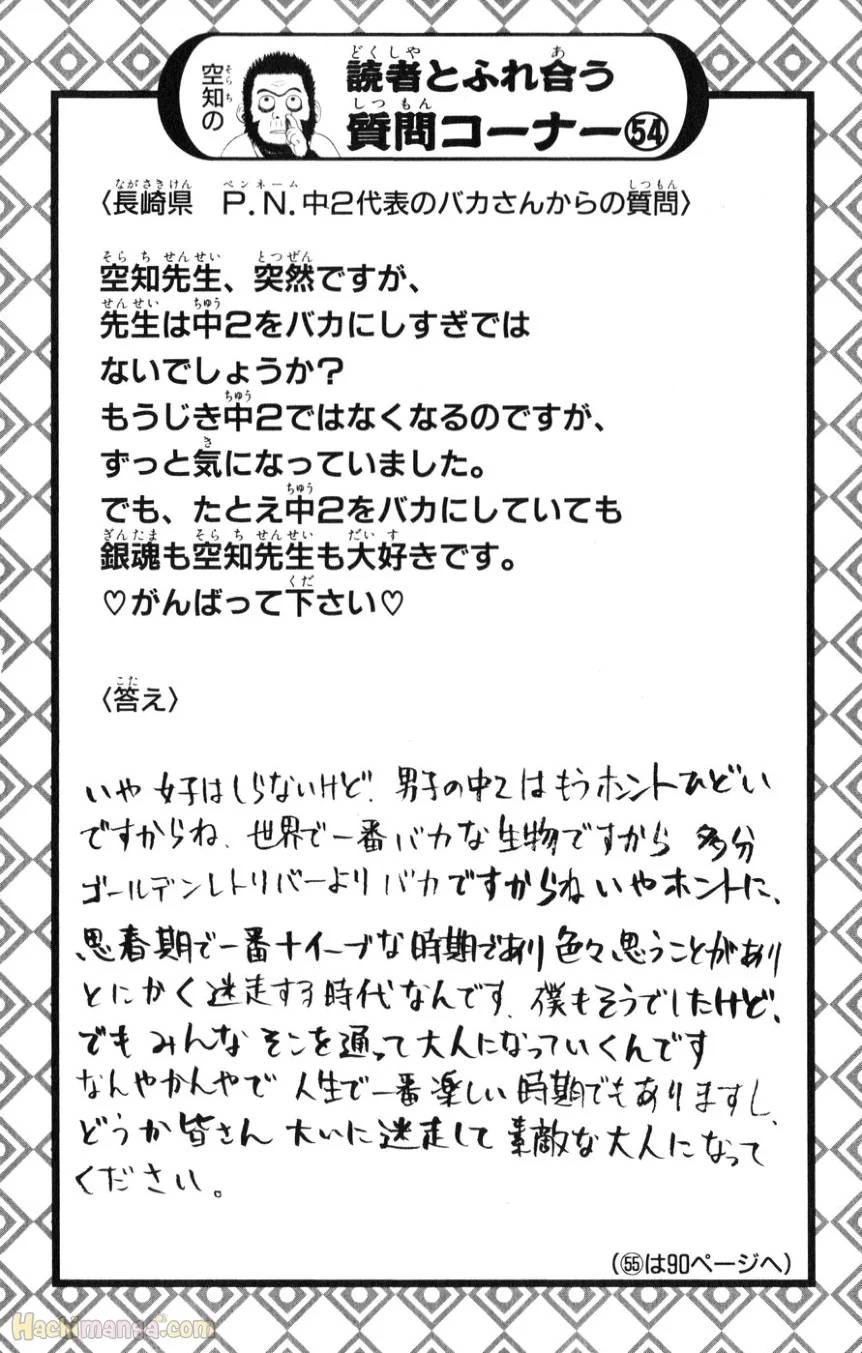 空知の
読者とふれ合う
質問コーナー54
〈長崎県 P.N.中2代表のバカさんからの質問〉
空知先生、突然ですが、
先生は中2をバカにしすぎでは
ないでしょうか？
もうじき中2ではなくなるのですが、
ずっと気になっていました。
でも、たとえ中2をバカにしていても
銀魂も空知先生も大好きです。
♡がんばって下さい♡
〈答え〉
いや 女子はしらないけど、男子の中2はもうホントひどい
ですからね、世界で一番バカな生物ですから 多分
ゴールデンレトリバーよりバカですからねいやホントに、
思春期で一番ナイーブな時期であり色々思うことがあり
とにかく迷走する時代なんです、僕もそうでしたけど、
でもみんなそこを通って大人になっていくんです
なんやかんやで人生で一番楽しい時期でもありますし、
どうか皆さん大いに迷走して素敵な大人になって
ください。
(55は90ページへ)
Hachimanga.com